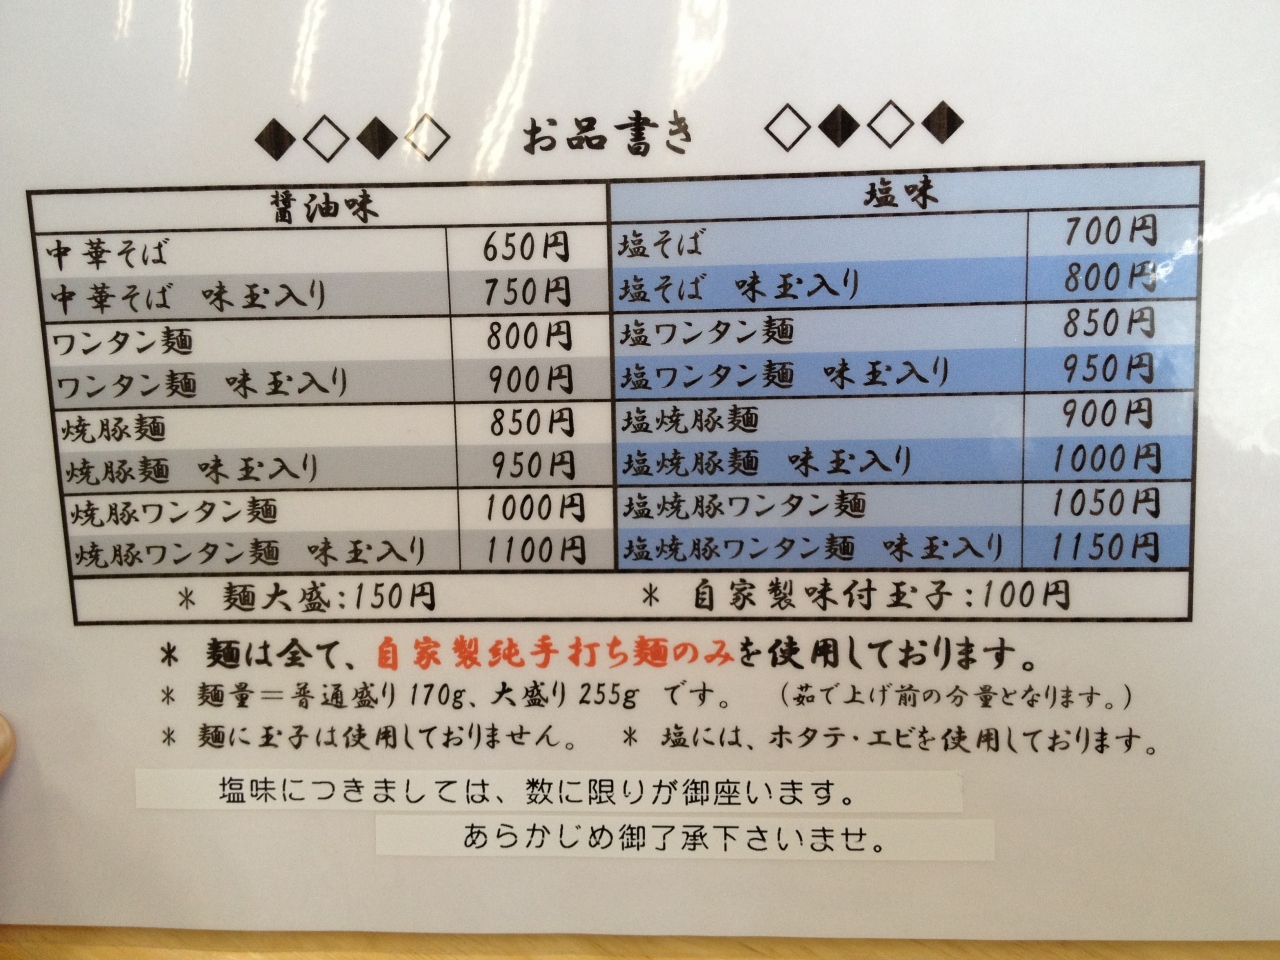 お品書き
醤油味 塩味
中華そば 650円 塩そば 700円
中華そば 味玉入り 750円 塩そば 味玉入り 800円
ワンタン麺 800円 塩ワンタン麺 850円
ワンタン麺 味玉入り 900円 塩ワンタン麺 味玉入り 950円
焼豚麺 850円 塩焼豚麺 900円
焼豚麺 味玉入り 950円 塩焼豚麺 味玉入り 1000円
焼豚ワンタン麺 1000円 塩焼豚ワンタン麺 1050円
焼豚ワンタン麺 味玉入り 1100円 塩焼豚ワンタン麺 味玉入り 1150円
＊ 麺大盛:150円 ＊ 自家製味付玉子:100円
＊ 麺は全て、自家製純手打ち麺のみを使用しております。
＊ 麺量＝普通盛り170g、大盛り255g です。 （茹で上げ前の分量となります。）
＊ 麺に玉子は使用しておりません。 ＊ 塩には、ホタテ・エビを使用しております。
塩味につきましては、数に限りが御座います。
あらかじめ御了承下さいませ。